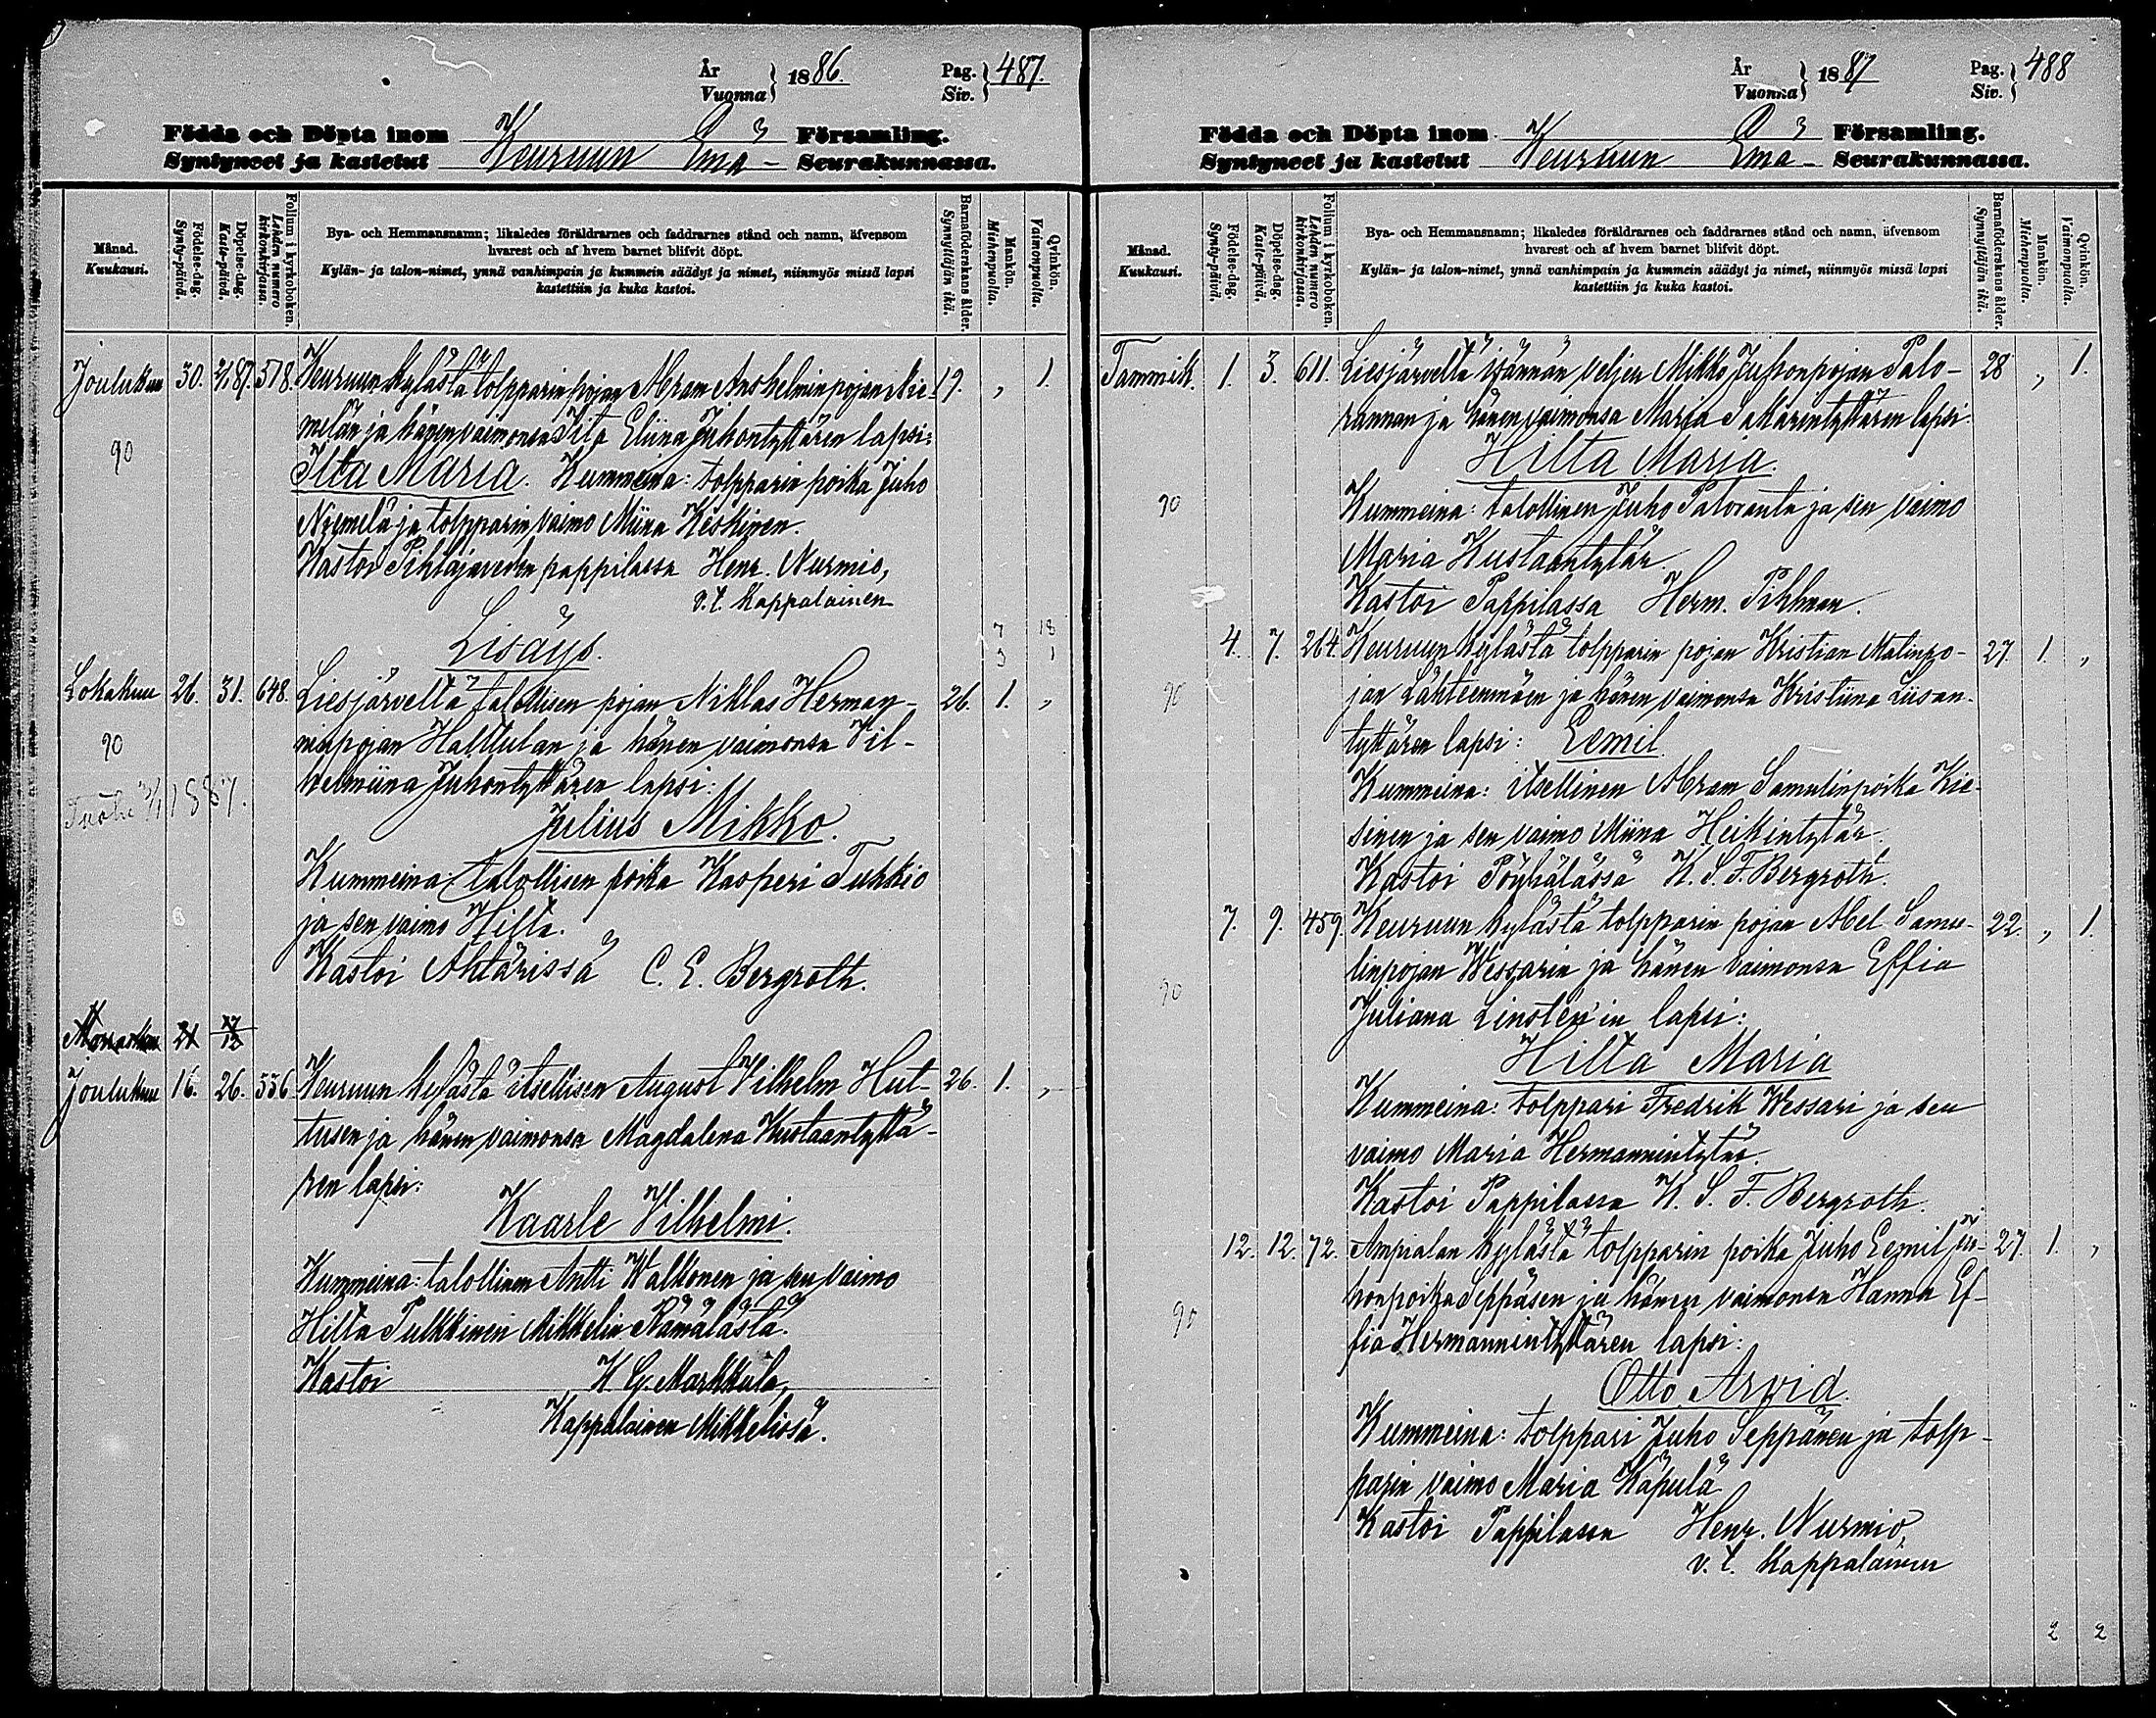 År
Vuonna } 1886.
Pag.
Siv. } 487.
Födda och Döpta inom Församling.
Syntyneet ja kastetut Keuruun Emä- Seurakunnassa.
Månad.
Kuukausi.
Födelse-dag.
Synty-päivä.
Döpelse-dag.
Kaste-päivä.
Folium i kyrkoboken.
Lehden numero
kirkonkirjassa.
Bya- och Hemmansnamn; likaledes föräldrarnes och faddrarnes stånd och namn, äfvensom
hvarest och af hvem barnet blifvit döpt.
Kylän- ja talon-nimet, ynnä vanhimpain ja kummein säädyt ja nimet, niinmyös missä lapsi
kastettiin ja kuka kastoi.
Barnaföderskans ålder.
Synnyttäjän ikä.
Mankön.
Miehenpuolia.
Qvinkön.
Vaimonpuolia.
Joulukuu 30. 2/1 87. 578. Keuruun kylästä tolpparin pojan Abram Anshelminpojan Nie- 19. „ 1.
melän ja hänen vaimonsa Iita Eliina Juhontyttären lapsi:
90
Ilta Maria. Kummeina: tolpparin poika Juho
Niemelä ja tolpparin vaimo Miina Keskinen.
Kastoi Pihlajaveden pappilassa Henr. Nurmio,
v. t. Kappalainen
Lisäys.
7 18
3 1
Lokakuu 26. 31. 648. Liesjärveltä talollisen pojan Niklas Herman- 26. 1. „
ninpojan Halttulan ja hänen vaimonsa Vil-
90
helmiina Juhontyttären lapsi:
1887.
Julius Mikko.
Kummeina: talollisen poika Kasperi Tukkio
ja sen vaimo Hilta.
Kastoi Ahtärissä C. E. Bergroth.
Marraskuu 21
Joulukuu 16. 26. 556 Keuruun kylästä itsellisen August Vilhelm Hut- 26. 1. „
tusen ja hänen vaimonsa Magdalena Kustaantyttä-
ren lapsi:
Kaarle Vilhelmi.
Kummeina: talollinen Antti Walkonen ja sen vaimo
Hilta Pulkkinen Mikkelin Rämälästä.
Kastoi K. G. Markkula,
Kappalainen Mikkelissä.
År
Vuonna } 1887
Pag.
Siv. } 488
Födda och Döpta inom Församling.
Syntyneet ja kastetut Keuruun Emä- Seurakunnassa.
Månad.
Kuukausi.
Födelse-dag.
Synty-päivä.
Döpelse-dag.
Kaste-päivä.
Folium i kyrkoboken.
Lehden numero
kirkonkirjassa.
Bya- och Hemmansnamn; likaledes föräldrarnes och faddrarnes stånd och namn, äfvensom
hvarest och af hvem barnet blifvit döpt.
Kylän- ja talon-nimet, ynnä vanhimpain ja kummein säädyt ja nimet, niinmyös missä lapsi
kastettiin ja kuka kastoi.
Barnaföderskans ålder.
Synnyttäjän ikä.
Mankön.
Miehenpuolia.
Qvinkön.
Vaimonpuolia.
Tammik. 1. 3. 611. Liesjärveltä isännän veljen Mikko Juhonpojan Palo- 28 „ 1.
rannan ja hänen vaimonsa Maria Sakarintyttären lapsi:
Hilta Maria.
90
Kummeina: talollinen Juho Paloranta ja sen vaimo
Maria Kustaantytär.
Kastoi Pappilassa Herm. Pihlman.
4. 7. 264. Keuruun kylästä tolpparin pojan Kristian Matinpo- 27. 1. „
90
jan Lähteenmäen ja hänen vaimonsa Kristiina Liisan-
tyttären lapsi: Eemil.
Kummeina: itsellinen Abram Samulinpoika Kie-
sinen ja sen vaimo Miina Heikintytär.
Kastoi Pöyhälässä K. S. F. Bergroth.
7. 9. 459. Keuruun kylästä tolpparin pojan Abel Samu- 22. „ 1.
linpojan Wessarin ja hänen vaimonsa Effia
90
Juliana Linsten'in lapsi:
Hilta Maria
Kummeina: tolppari Fredrik Wessari ja sen
vaimo Maria Hermannintytär.
Kastoi Pappilassa K. S. F. Bergroth.
12. 12. 72. Ampialan kylästä tolpparin poika Juho Eemil Ju- 27. 1. „
honpoika Seppäsen ja hänen vaimonsa Hanna Ef-
90
fia Hermannintyttären lapsi:
Otto Arvid.
Kummeina: tolppari Juho Seppänen ja tolp-
parin vaimo Maria Käpulä
Kastoi Pappilassa Henr. Nurmio,
v. t. Kappalainen
2 2